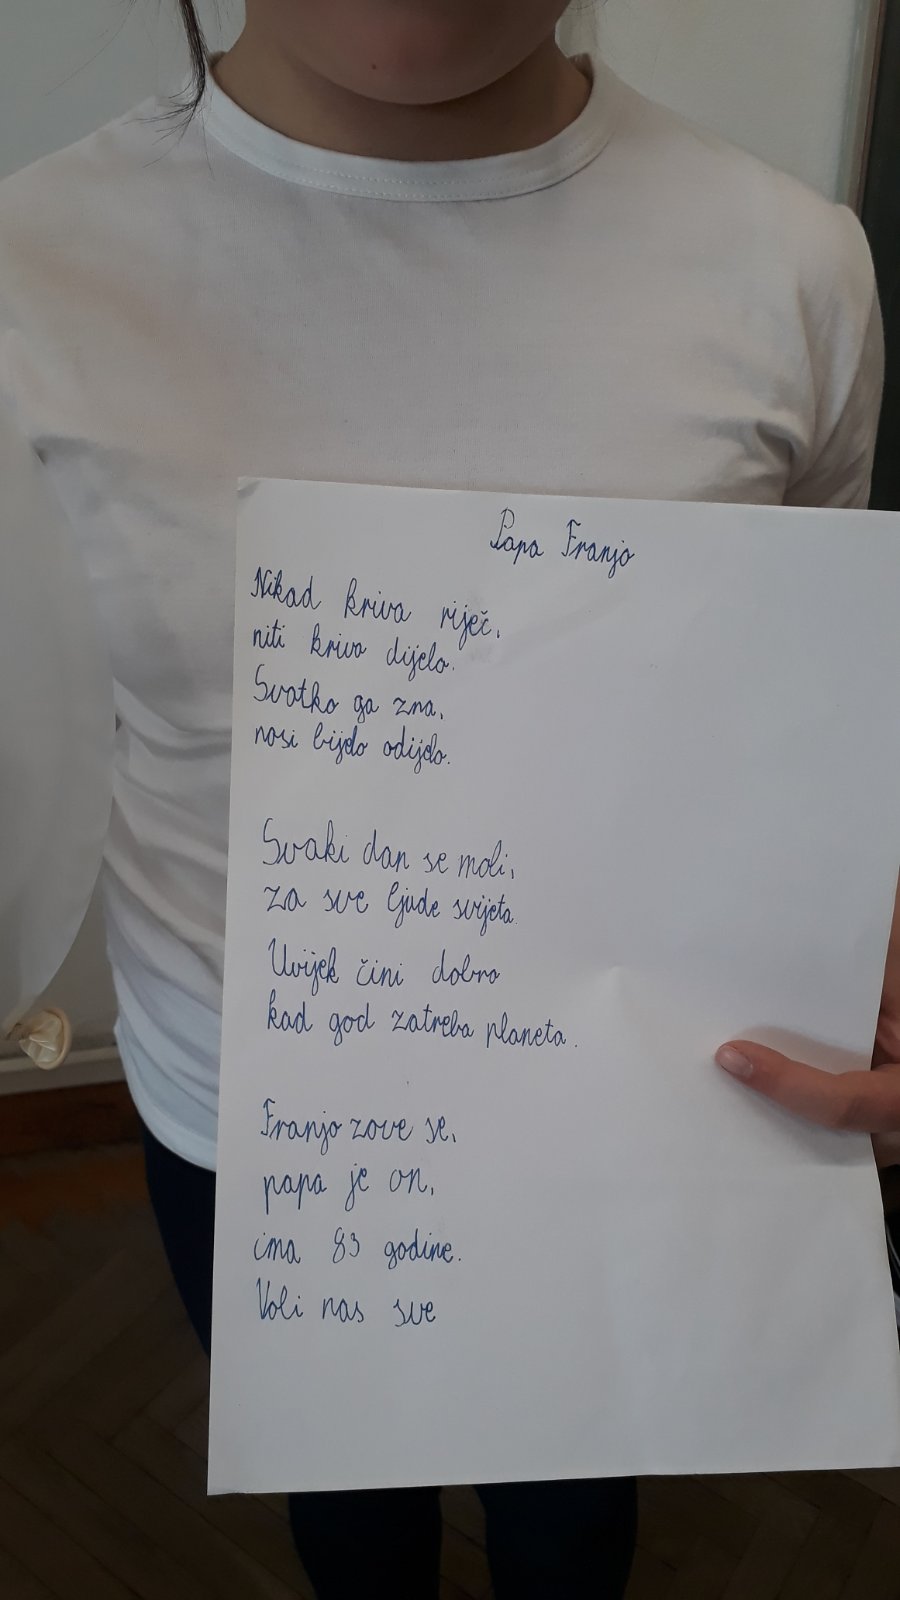 Papa Franjo
Nikad kriva riječ,
niti kriva dijela.
Svatko ga zna,
nosi bijelo odijelo.
Svaki dan se moli,
za sve ljude svijeta.
Uvijek čini dobro
kad god zatreba planeta.
Franjo zove se,
papa je on,
ima 83 godine.
Voli nas sve